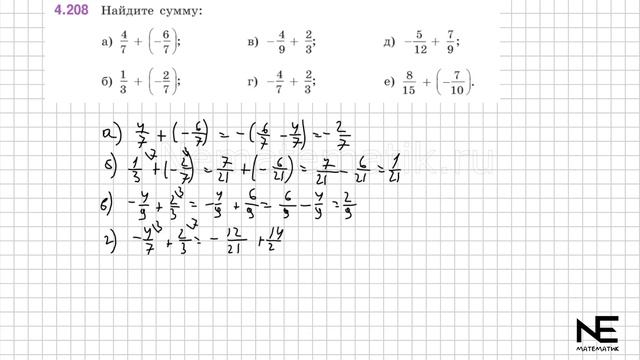 4.208 Найдите сумму:
а) 4/7 + (-6/7); в) -4/9 + 2/3; д) -5/12 + 7/9;
б) 1/3 + (-2/7); г) -4/7 + 2/3; е) 8/15 + (-7/10).
а) 4/7 + (-6/7) = -(6/7 - 4/7) = -2/7
б) 1/3 \7 + (-2/7 \3) = 7/21 + (-6/21) = 7/21 - 6/21 = 1/21
в) -4/9 + 2/3 \3 = -4/9 + 6/9 = 6/9 - 4/9 = 2/9
г) -4/7 \3 + 2/3 \7 = -12/21 + 14/2
NE
МАТЕМАТИК